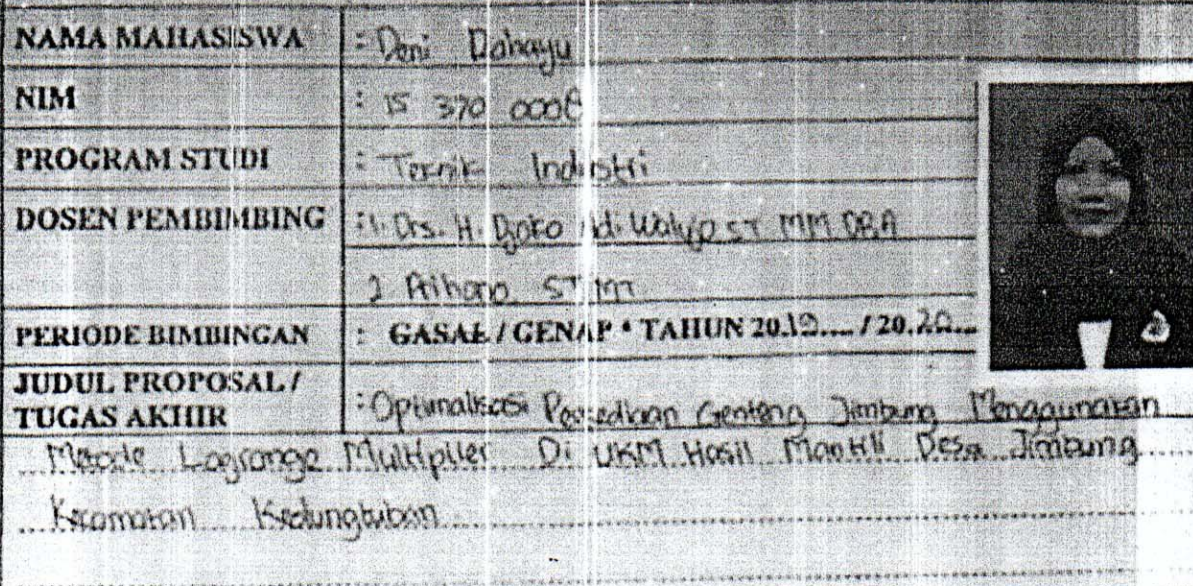 NAMA MAHASISWA : Deni Dahayu
NIM : 15 370 0008
PROGRAM STUDI : Teknik Industri
DOSEN PEMBIMBING : 1. Drs. H. Djoko Adi Walujo ST MM DBA
2 ST MT
PERIODE BIMBINGAN : GASAL / GENAP * TAHUN 20.19.... / 20.20....
JUDUL PROPOSAL /
TUGAS AKHIR : Optimalisasi Persediaan Genteng Jimbung Menggunakan
Metode Lagrange Multiplier Di UKM Hasil Desa Jimbung
Kecamatan Kedungtuban